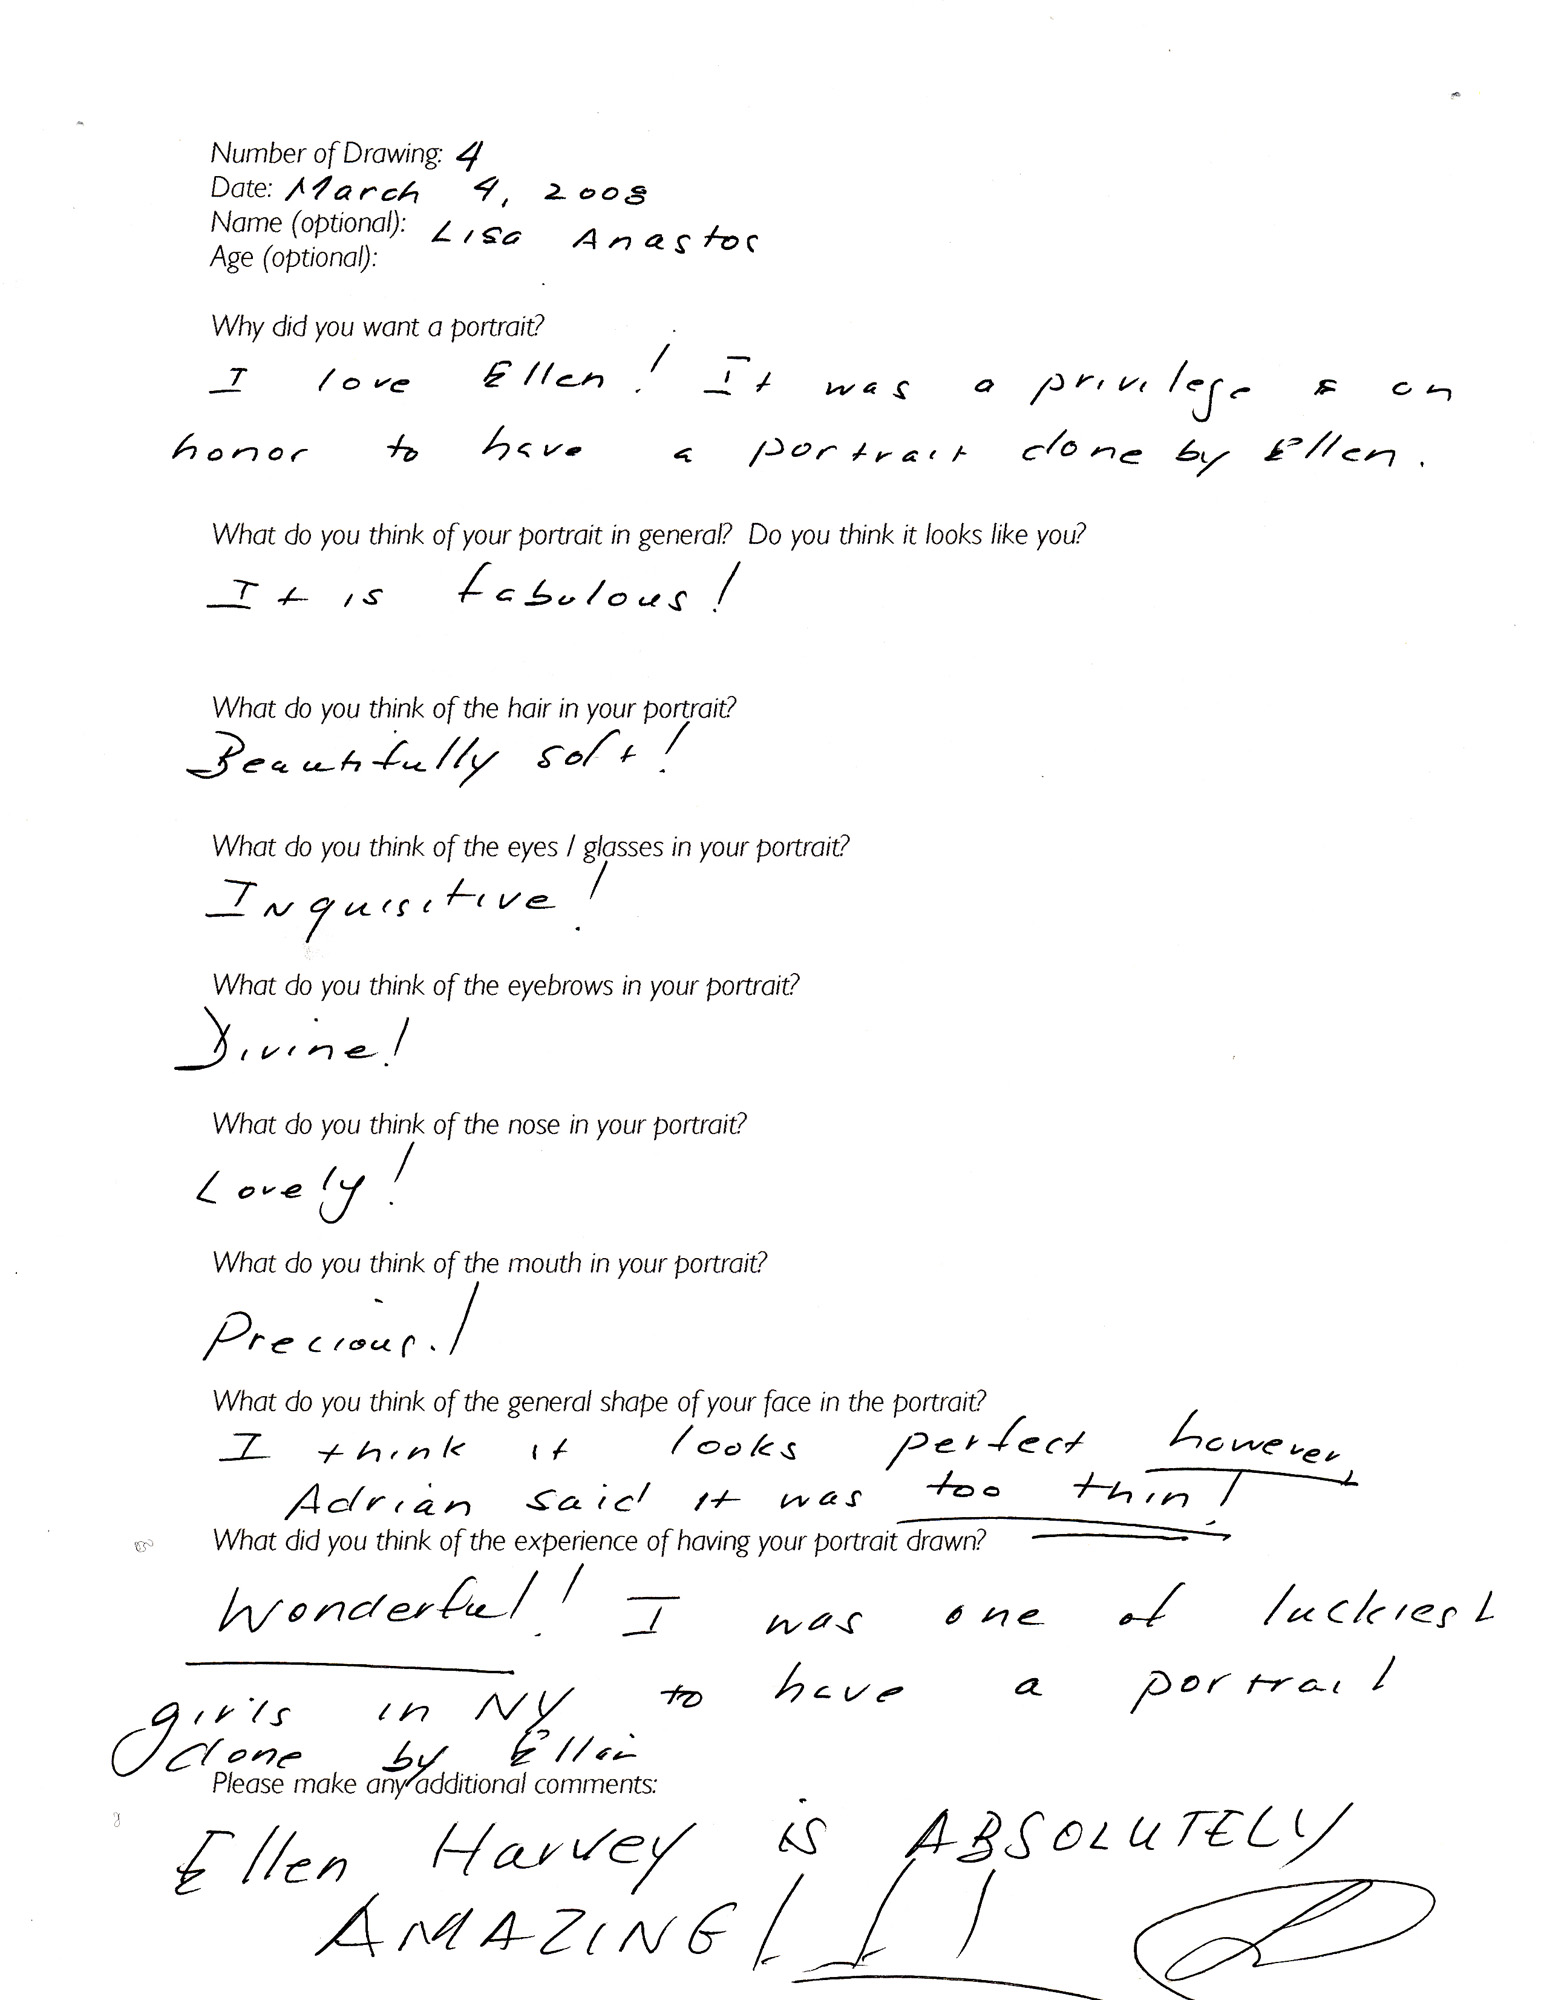 Number of Drawing: 4
Date: March 4, 2008
Name (optional): Lisa Anastos
Age (optional):
Why did you want a portrait?
I love Ellen! It was a privilege & an
honor to have a portrait done by Ellen.
What do you think of your portrait in general? Do you think it looks like you?
It is fabulous!
What do you think of the hair in your portrait?
Beautifully soft!
What do you think of the eyes / glasses in your portrait?
Inquisitive!
What do you think of the eyebrows in your portrait?
Divine!
What do you think of the nose in your portrait?
Lovely!
What do you think of the mouth in your portrait?
Precious!
What do you think of the general shape of your face in the portrait?
I think it looks perfect however,
Adrian said it was too thin!
What did you think of the experience of having your portrait drawn?
Wonderful! I was one of luckiest
girls in NY to have a portrait
done by Ellen
Please make any additional comments:
Ellen Harvey is ABSOLUTELY
AMAZING!!!